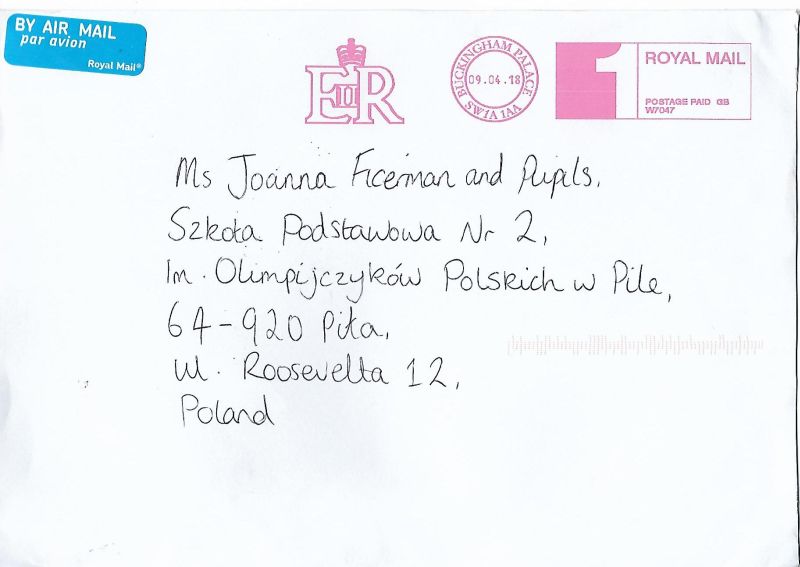 BY AIR MAIL
par avion
Royal Mail®
EIIR
BUCKINGHAM PALACE
09.04.18
SW1A 1AA
1
ROYAL MAIL
POSTAGE PAID GB
W7047
Ms Joanna Ficerman and Pupils,
Szkoła Podstawowa Nr 2,
Im. Olimpijczyków Polskich w Pile,
64-920 Piła,
ul. Roosevelta 12,
Poland